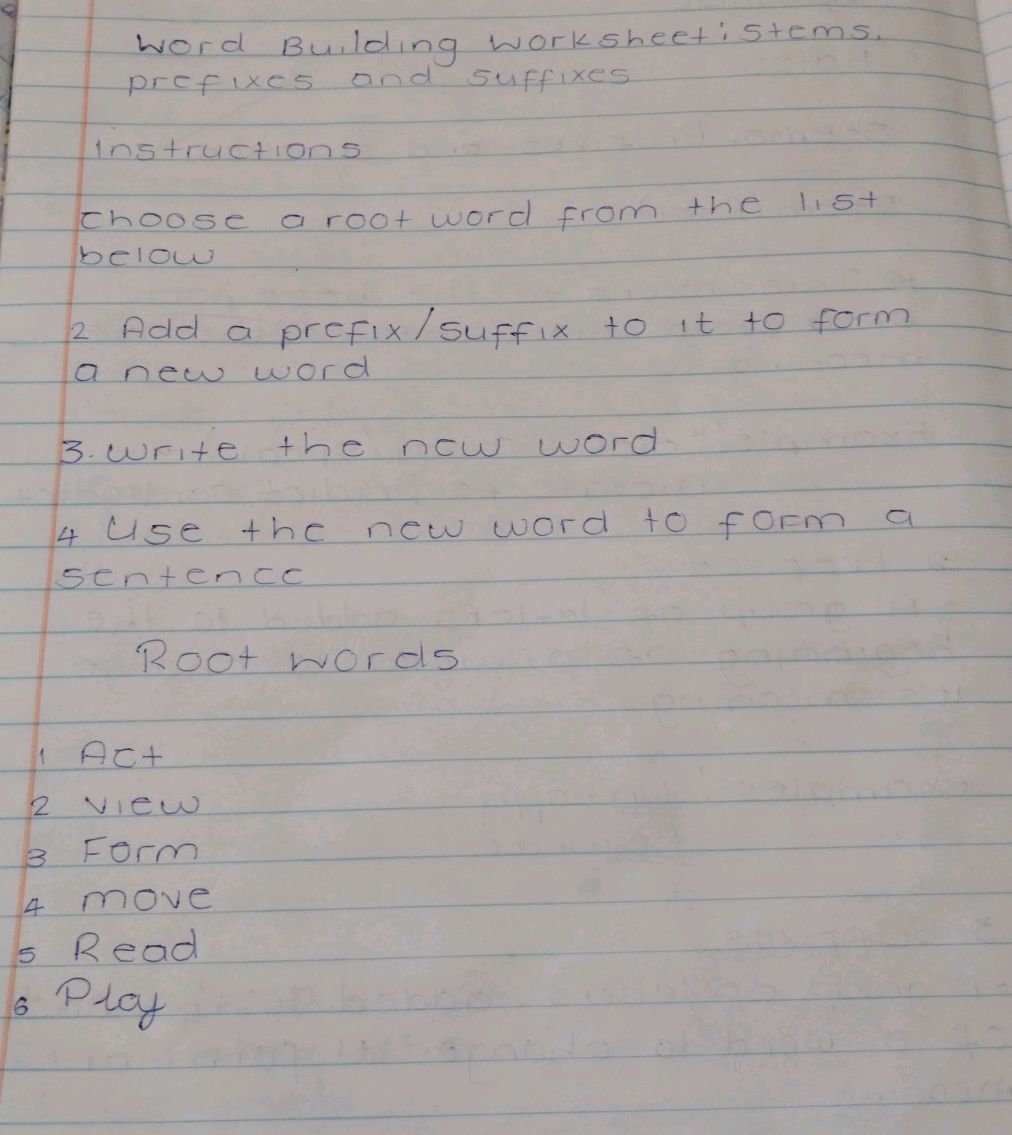 Word Building worksheet: stems,
prefixes and suffixes
Instructions
Choose a root word from the list
below
2 Add a prefix/suffix to it to form
a new word
3. Write the new word
4 Use the new word to form a
sentence
Root words
1 Act
2 View
3 Form
4 move
5 Read
6 Play